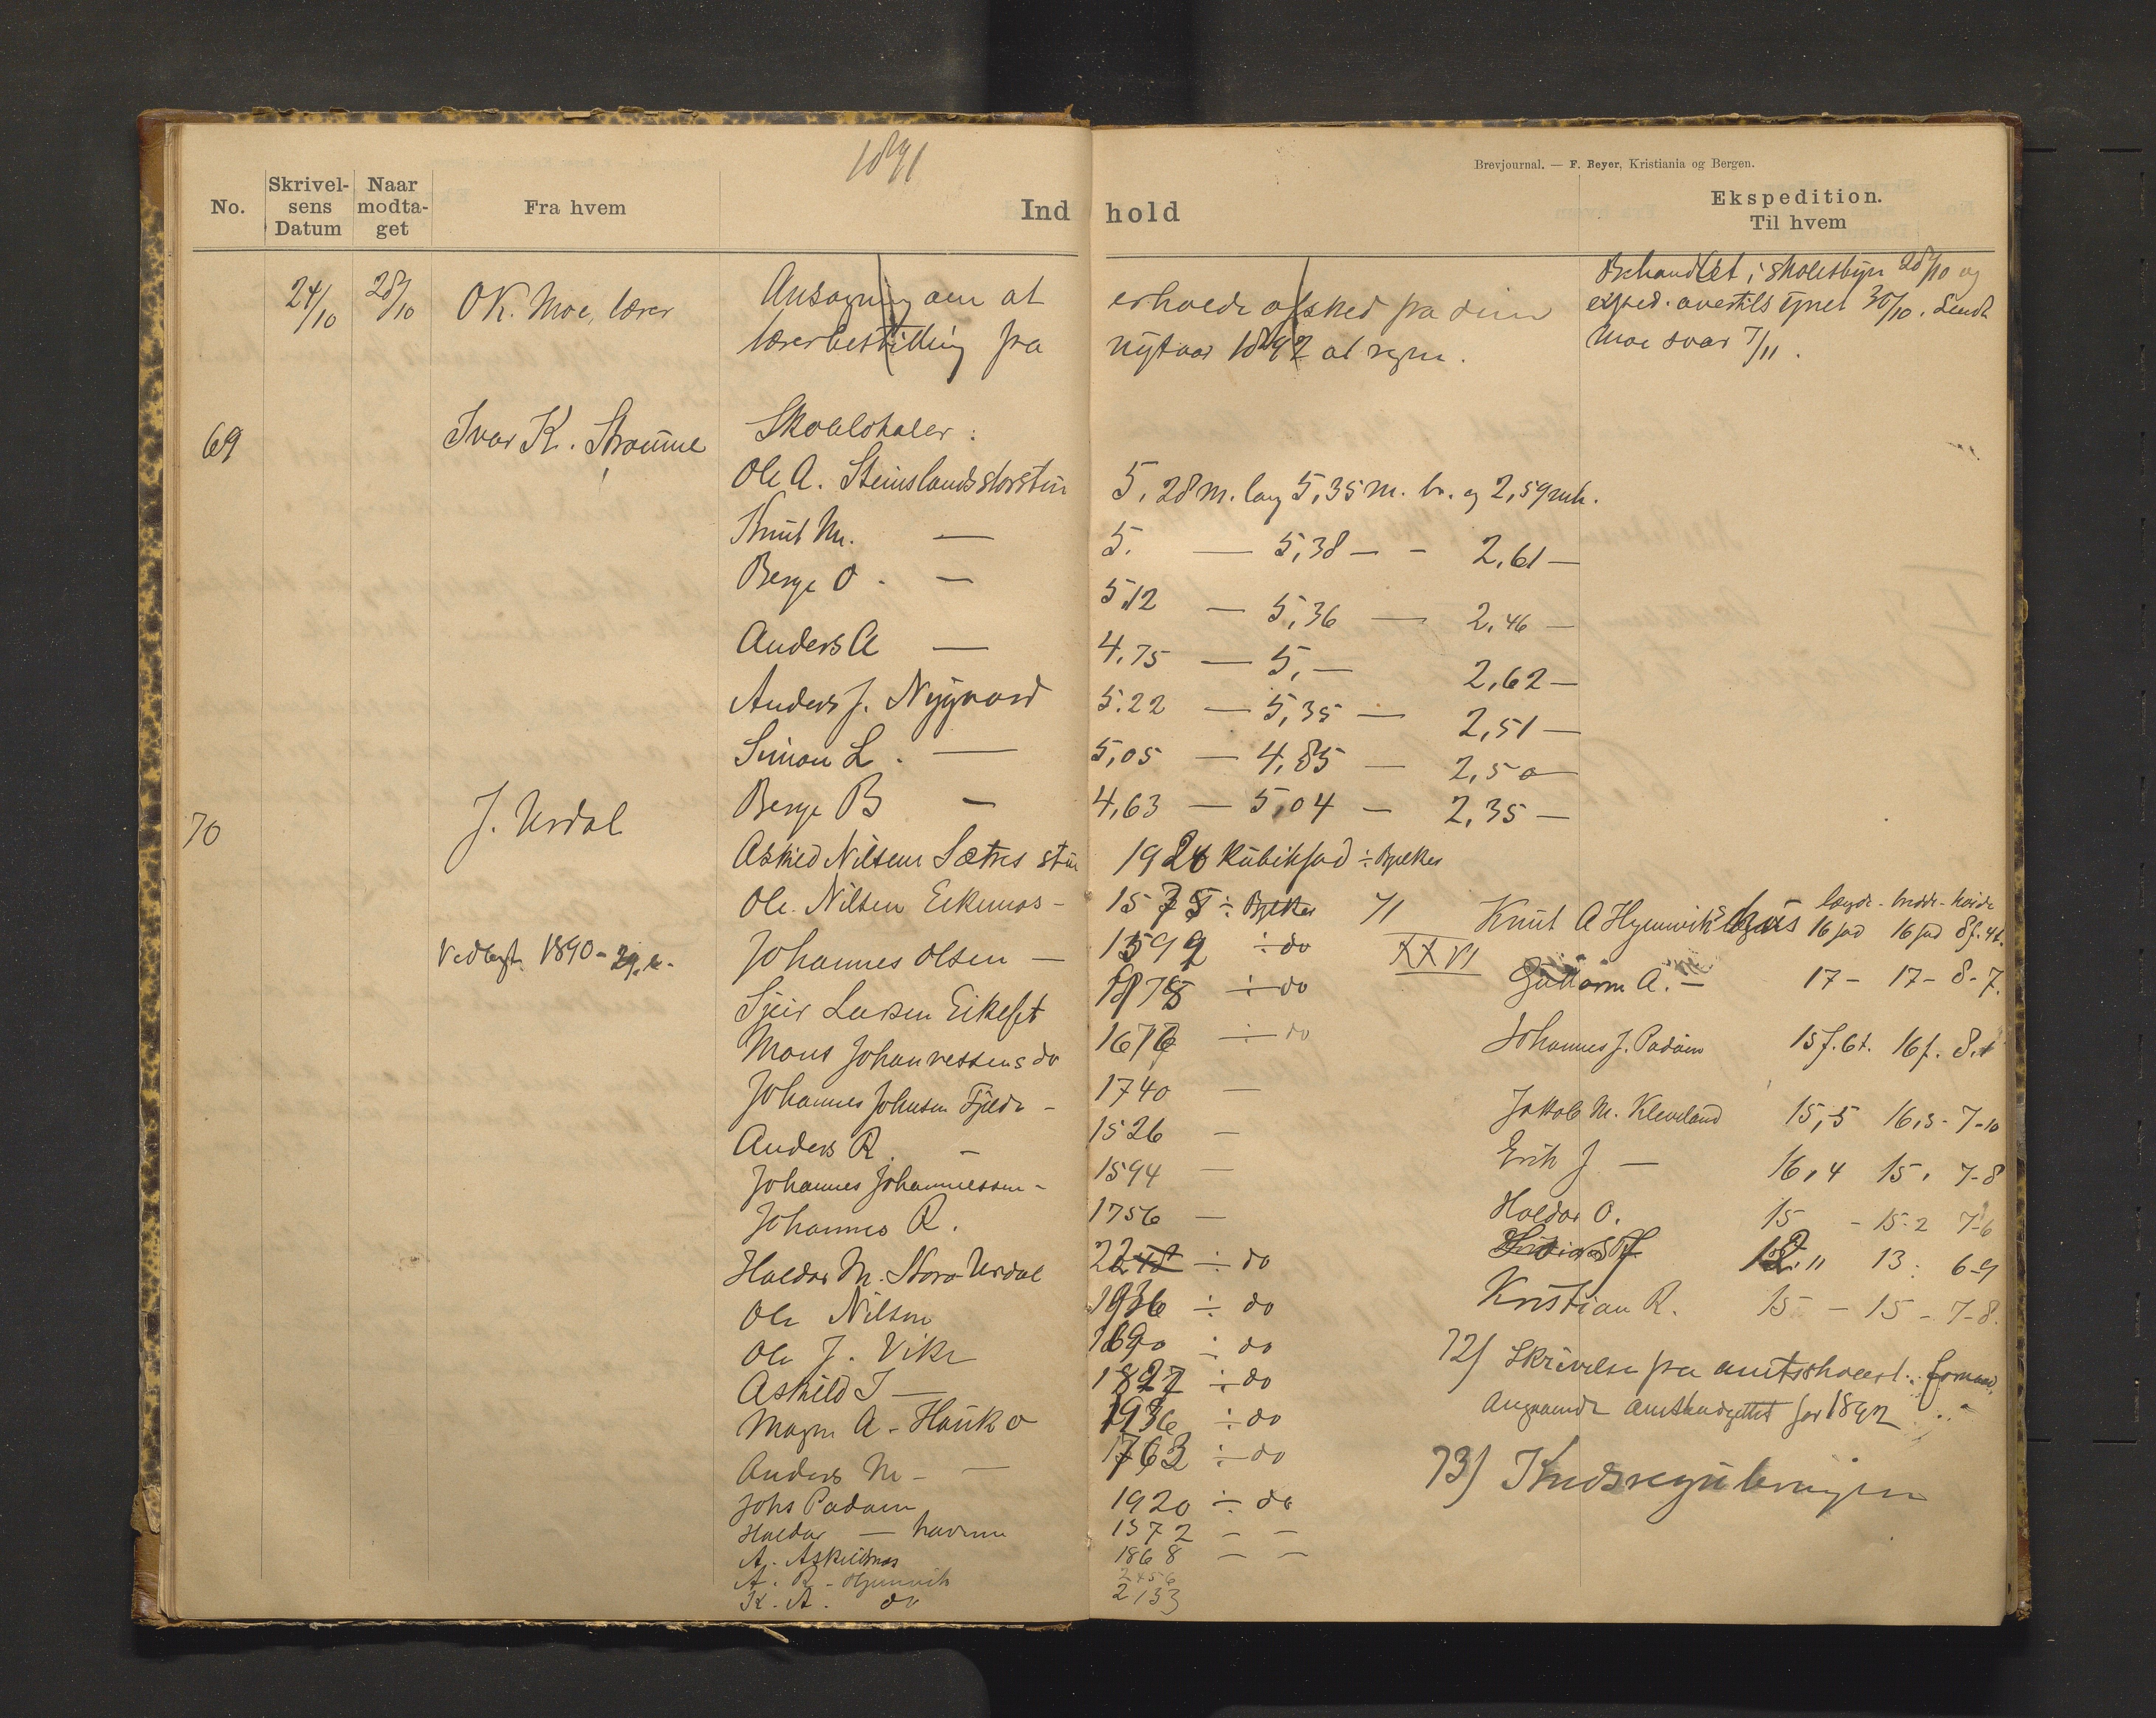 1891
Brevjournal. — F. Beyer, Kristiania og Bergen.
No.
Skrivelsens Datum
Naar modtaget
Fra hvem
Indhold
Ekspedition.
Til hvem
24/10 28/10 OK. Moe, lærer Ansøgning om at erholde afsked fra sin
lærerbestilling fra nytaar 1892 at regne.
Behandlet i skolestyr 28/10 og
exped. overtils synet 30/10. Sendt
Moe svar 7/11.
69 Ivar K. Strømme Skolelokaler:
Ole A. Steinslands storstue 5,28 m. lang 5,35 m. br. og 2,59 m h.
Knut M. — 5. — 5,38 — - 2,61 —
Berge O. — 5,12 — 5,36 — 2,46 —
Anders A — 4,75 — 5, — 2,62 —
Anders J. Nygaard 5.22 — 5,35 — 2,51 —
Simon L. — 5,05 — 4,85 — 2,50 —
70 J. Urdal Berge B — 4,63 — 5,04 — 2,35 —
Askild Nilsen Sætres stue 1924 Kubikfod ÷ Bjelker
Ole Nilsen Eikemos - 1575 ÷ Bjelker
Vedtægt 1890 - Johannes Olsen — 1592 ÷ do
Larsen Eikeset 1878 ÷ do
Mons Johannessens do 1676 ÷ do
Johannes Johnsen Fjelde - 1740 —
Anders R. - 1526 —
Johannes Johannessen - 1594 —
Johannes R. 1756 —
Haldor M. Store Urdal ÷ do
Ole Nilsen 1936 ÷ do
Ole J. Vike 1690 ÷ do
Askild I — 1827 ÷ do
Magne A - Hauk o 1936 ÷ do
Anders M - — 1763 ÷ do
Johs Padøen 1920 ÷ do
Haldor — havrene 1572 — —
A. Askildsnes 1868 — —
A. R - Hjemvik 2456
K. A. do 2133
71 XXVI
længde - bredde - høide
Knut A Hjemviks 16 fod 16 fod 8 f. 4 t.
Guttorm A. — 17 - 17 - 8 - 7.
Johannes J. Padøen 15 f. 6 t. 16 f. 8.
Jakob M. Kleveland 15,5 16,5 - 7-10
Erik J — 16,4 15, 7-8
Haldor O. 15 - 15.2 7-6
12.11 13. 6-9
Kristian R. 15 - 15 - 7-8.
72) Skrivelse fra amtsskolest. formand,
Angaaende amtsbudgettet for 1892
73) Kredsreguleringen